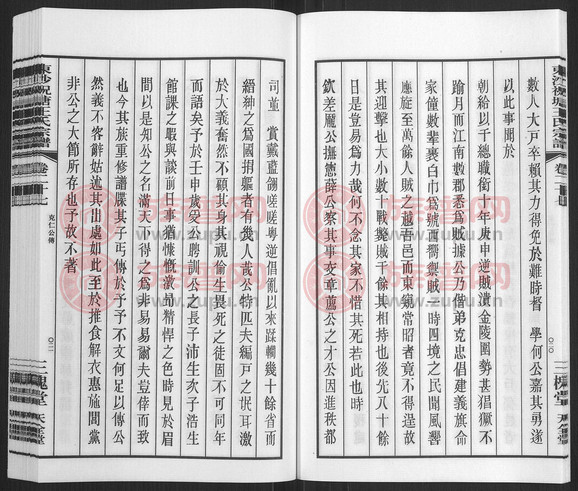 東沙祝塘王氏宗譜
卷二十七
〇二〇
三槐堂
數人大戶卒賴其力得免於難時督 學何公嘉其勇遂
以此事聞於
朝給以千總職銜十年庚申逆賊潰金陵圍勢甚猖獗不
踰月而江南數郡悉為賊據公乃偕弟克忠倡建義旗命
家僮數輩裹白巾為號西禦賊一時四境之民聞風嚮
應旋至萬餘人賊之越吾邑而東窺常昭者竟不得逞故
其迎擊也大小數十戰斃賊千餘其相持也後先八十餘
日是豈易為力哉何不念其家不惜其死若此也時
欽差龐公撫憲薛公察其事交章薦公之才公因進秩都
司並 賞戴藍翎嗟嗟粵逆倡亂以來蹂躪幾十餘省而
縉紳之為國捐軀者有幾人哉公特匹夫編戶之氓耳激
於大義奮然不顧其身其視偷生畏死之徒固不可同年
而語矣予於壬申歲受公聘訓公之長子沛生次子浩生
館課之暇與談前日事猶慷慨激 精悍之色時見於眉
間以是知公之名滿天下得之為非易易爾夫豈倖而致
也今其族重修譜牒其子丐傳於予予不文何足以傳公
然義不容辭姑述其出處如此至於推食解衣惠施閭黨
非公之大節所存也予故不著
東沙祝塘王氏宗譜
卷二十七
克仁公傳
〇二一
三槐堂